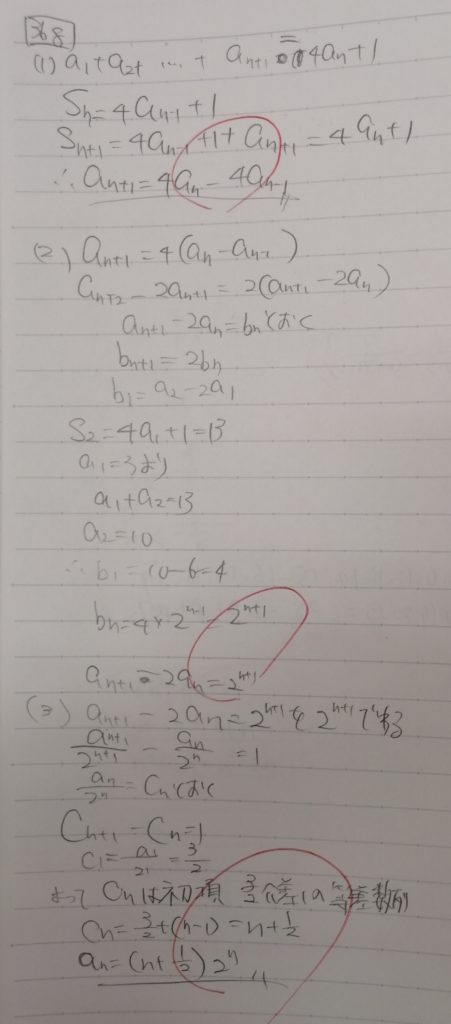 368
(1) a1+a2+ … + an+1 = 4an+1
Sn=4an-1+1
Sn+1=4an-1+1+an+1=4an+1
∴an+1=4an-4an-1
(2) an+1=4(an-an-1)
an+2-2an+1=2(an+1-2an)
an+1-2an=bnとおく
bn+1=2bn
b1=a2-2a1
S2=4a1+1=13
a1=3より
a1+a2=13
a2=10
∴b1=10-6=4
bn=4×2^n-1=2^n+1
an+1-2an=2^n+1
(3) an+1-2an=2^n+1を2^n+1でわる
an+1/2^n+1 - an/2^n =1
an/2^n=Cnとおく
Cn+1-Cn=1
C1=a1/2^1=3/2
よってCnは初項3/2公差1の等差数列
Cn=3/2+(n-1)=n+1/2
an=(n+1/2)2^n